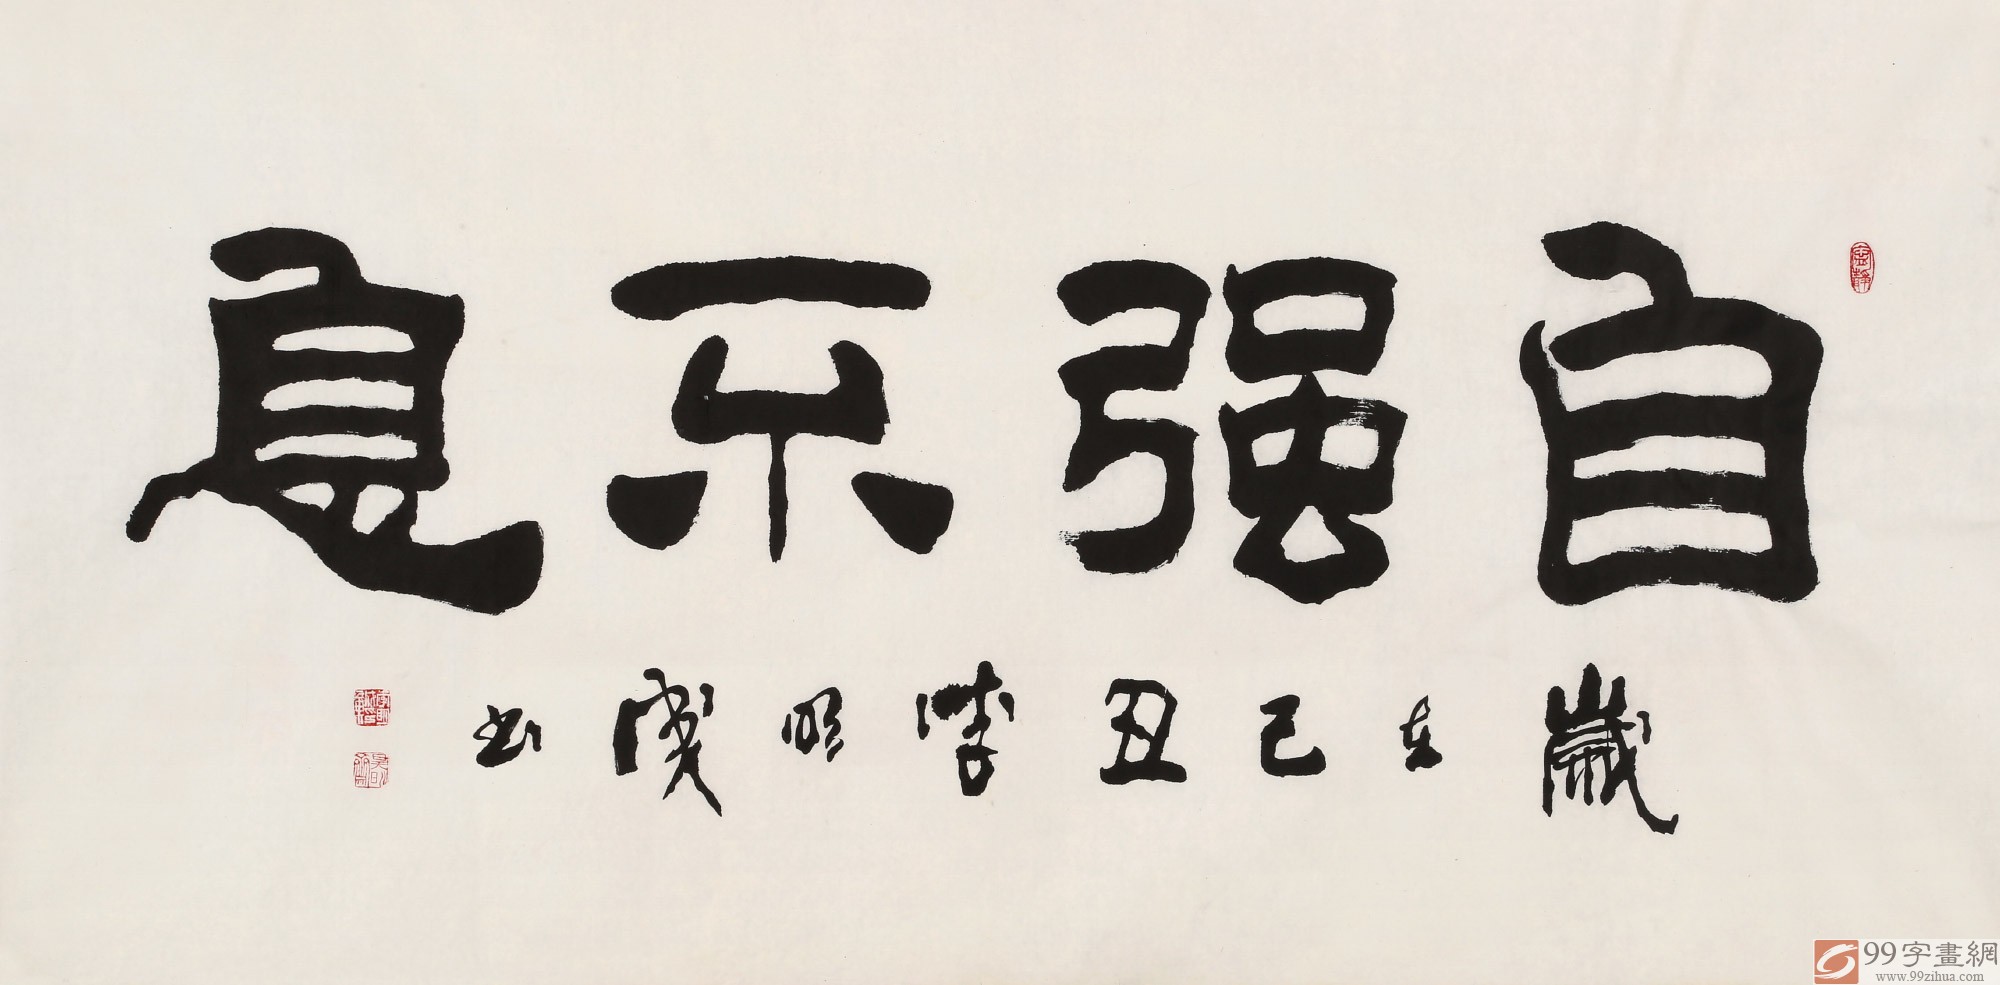 自强不息
歲在己丑李明成书
99字畫網
www.99zihua.com